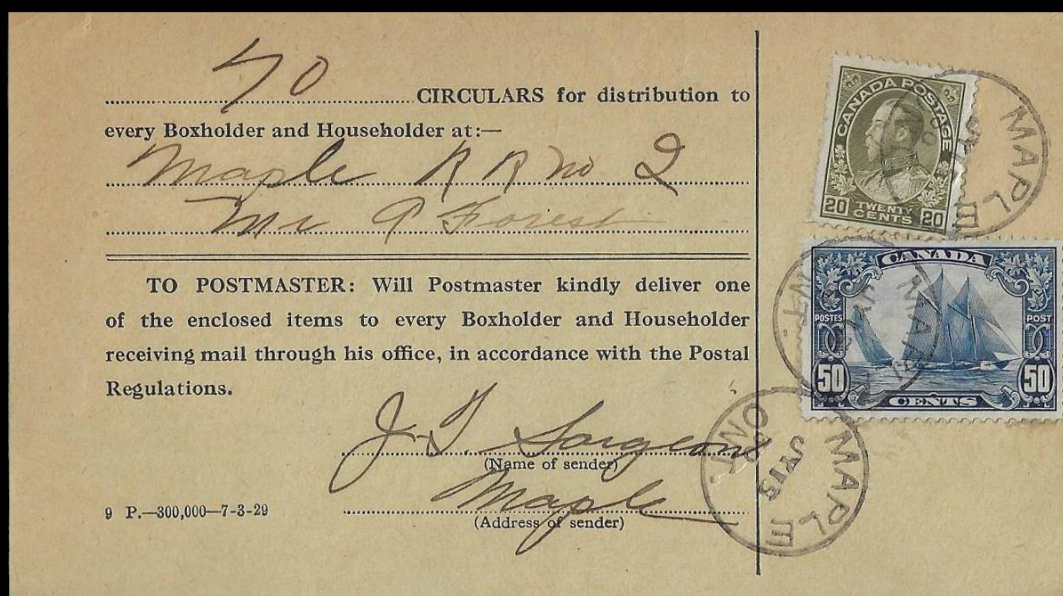 70 CIRCULARS for distribution to
every Boxholder and Householder at:—
Maple R R no 2
Mr P Forest
TO POSTMASTER: Will Postmaster kindly deliver one
of the enclosed items to every Boxholder and Householder
receiving mail through his office, in accordance with the Postal
Regulations.
J. T. Sargeon
(Name of sender)
Maple
(Address of sender)
9 P.—300,000—7-3-29
CANADA POSTAGE
20 TWENTY CENTS 20
MAPLE
CANADA
POSTES POST
50 CENTS 50
MAPLE
ONT.
MAPLE
JY 15
ONT.